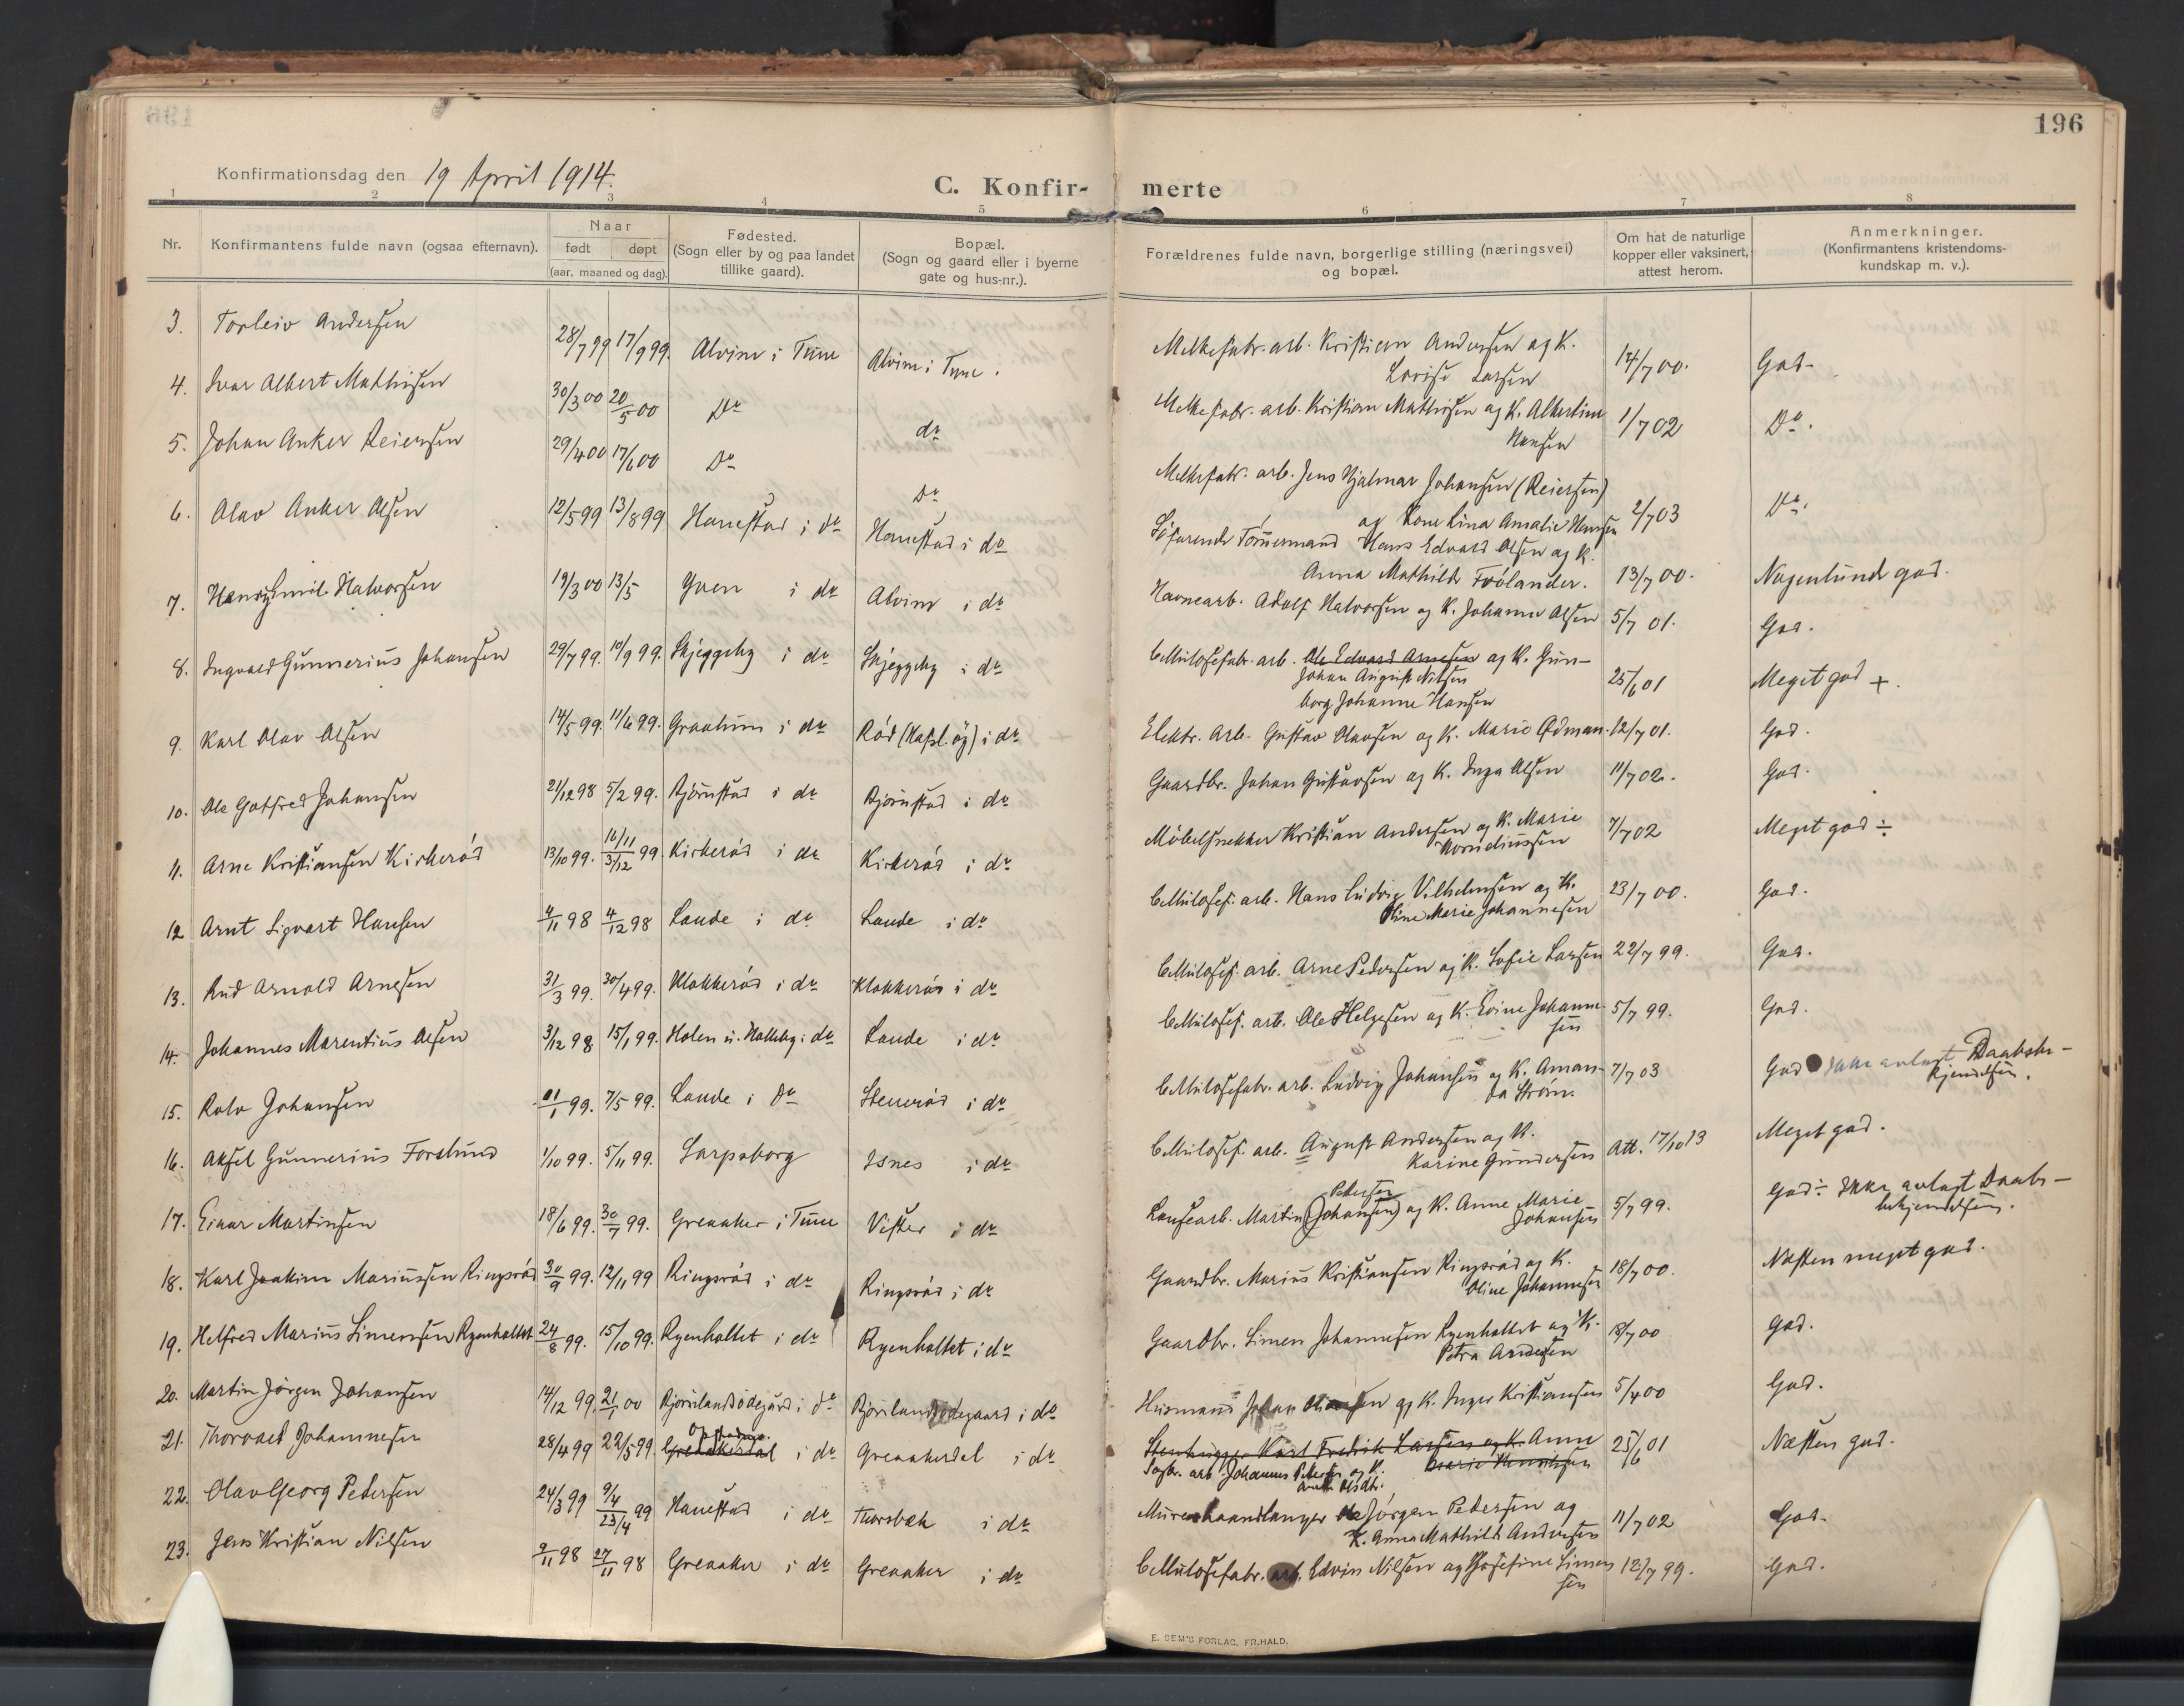 196
Konfirmationsdag den 19 April 1914.
C. Konfir- merte
1 2 3 4 5 6 7 8
Nr. Konfirmantens fulde navn (ogsaa efternavn). Naar født døpt (aar, maaned og dag). Fødested. (Sogn eller by og paa landet tillike gaard). Bopæl. (Sogn og gaard eller i byerne gate og hus-nr.). Forældrenes fulde navn, borgerlige stilling (næringsvei) og bopæl. Om hat de naturlige kopper eller vaksinert, attest herom. Anmerkninger. (Konfirmantens kristendoms-kundskap m. v.).
3. Torleiv Andersen 28/7 99 17/9 99. Alvim i Tune Alvim i Tune. Melkefabr. arb. Kristian Andersen og K. Lovise Larsen 14/7 00. God.
4. Ivar Albert Mathisen 30/3 00 20/5 00 Do do Melkefabr. arb. Kristian Mathisen og K. Albertine Hansen 1/7 02 Do.
5. Johan Anker Reiersen 29/4 00 17/6 00 Do Do Melkefabr. arb. Jens Hjalmar Johansen (Reiersen) og Kone Lina Amalie Hansen 2/7 03 Do.
6. Olav Anker Olsen 12/5 99 13/8 99 Hanestad i do Hanestad i do Sjøfarende Tømmermand Hans Edvard Olsen og K. Anna Mathilde Frölander. 13/7 00. Nogenlunde god.
7. Henry Emil Halvorsen 19/3 00 13/5 Yven i do Alvim i do Havnearb. Adolf Halvorsen og K. Johanne Olsen 5/7 01. God.
8. Ingvald Gunnerius Johansen 29/7 99. 10/9 99. Skjeggeby i do Skjeggeby i do Cellulosefabr. arb. Ole Edvard Arnesen og K. Gun-
Johan August Nilsen
borg Johanne Hansen 25/6 01 Meget god +.
9. Karl Olav Olsen 14/5 99. 11/6 99. Graatum i do Rød (Hasl. øy) i do Elektr. Arb. Gustav Olavsen og K. Marie Ødman. 12/7 01. God.
10. Ole Gotfred Johansen 21/12 98 5/2 99. Bjørnstad i do Bjørnstad i do Gaardbr. Johan Gustavsen og K. Inga Olsen 11/7 02. God.
11. Arne Kristiansen Kirkerød 13/10 99. 16/11 3/12 99. Kirkerød i do Kirkerød i do Møbelsnekker Kristian Andersen og K. Marie Korneliussen 7/7 02 Meget god ÷
12 Arnt Sigvart Hansen 4/11 98 4/12 98 Lande i do Lande i do Cellulosef. arb. Hans Ludvig Vilhelmsen og K. Oline Marie Johannesen 23/7 00. God.
13. Rud Arnold Arnesen 31/3 99. 30/4 99. Klokkerød i do Klokkerød i do Cellulosef. arb. Arne Pedersen og K. Sofie Larsen 22/7 99. God.
14. Johannes Marentius Olsen 3/12 98. 15/1 99. Holen u. Halleby i do Lande i do Cellulosef. arb. Ole Helgesen og K. Evine Johanne-
sen 5/7 99. God.
15. Rolv Johansen 11/1 99. 7/5 99. Lande i Do Stenerød i do Cellulosefabr. arb. Ludvig Johansen og K. Aman-
da Strøm. 7/7 03 God avlagt Daabsbe-
kjendelsen.
16. Aksel Gunnerius Forslund 1/10 99. 5/11 99. Sarpsborg Isnes i do Cellulosef. arb. August Andersen og K. Karine Gundersen Att. 17/10 13 Meget god.
17. Einar Martinsen 18/6 99. 30/7 99. Greaaker i Tune Vister i do Lansearb. Martin Pedersen (Johansen) og K. Anne Marie Johansen 5/7 99. God ÷ avlagt Daabs-
bekjendelsen.
18. Karl Joakim Mariussen Ringsrød 30/9 99. 12/11 99 Ringsrød i do Ringsrød i do Gaardbr. Marius Kristiansen Ringsrød og K. Oline Johannesen 18/7 00. Næsten meget god.
19. Helfred Marius Simensen Ryenholtet 24/8 99. 15/10 99. Ryenholtet i do Ryenholtet i do Gaardbr. Simen Johannesen Ryenholtet og K. Petra Andersen 18/7 00 God.
20. Martin Jørgen Johansen 14/12 99. 21/1 00 Bjørnlandsødegard i do Bjørnlandsødegaard i do Husmand Johan og K. Inger Kristiansen 5/4 00 God.
21. Thorvald Johannesen 28/4 99 22/5 99. Greaakerdal i do Greaakerdal i do Stenhugger Karl Fredrik Larsen og K. Anne Marie
Sagbr. arb. Johannes Pettersen og K. Olsdtr. 25/6 01 Næsten god.
22. Olav Georg Pedersen 24/3 99 9/4 23/4 99 Hanestad i do Thorsbæk i do Murerhaandlanger Ole Jørgen Pedersen og K. Anna Mathilde Andersen 11/7 02 God.
23. Jens Kristian Nilsen 9/11 98 27/11 98 Greaaker i do Greaaker i do Cellulosefabr. arb. Edvin Nilsen og Josefine Simen-
sen 12/7 99. God.
E. SEM'S FORLAG, FR.HALD.